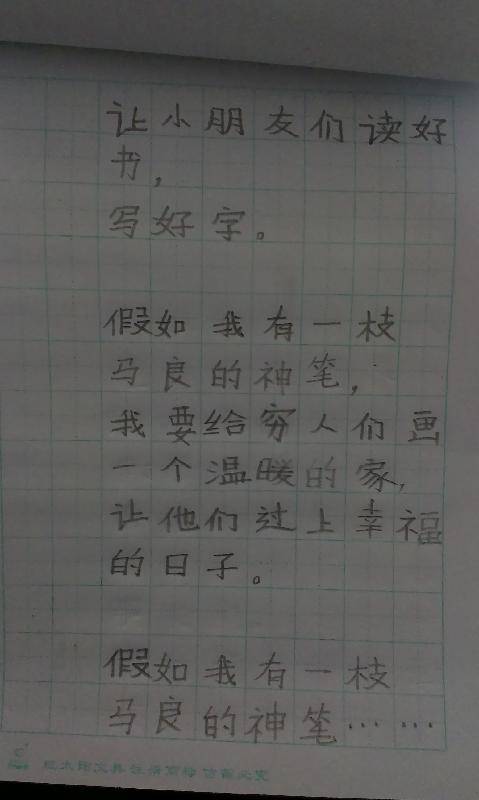 让小朋友们读好
书，
写好字。
假如我有一枝
马良的神笔，
我要给穷人们画
一个温暖的家，
让他们过上幸福
的日子。
假如我有一枝
马良的神笔……